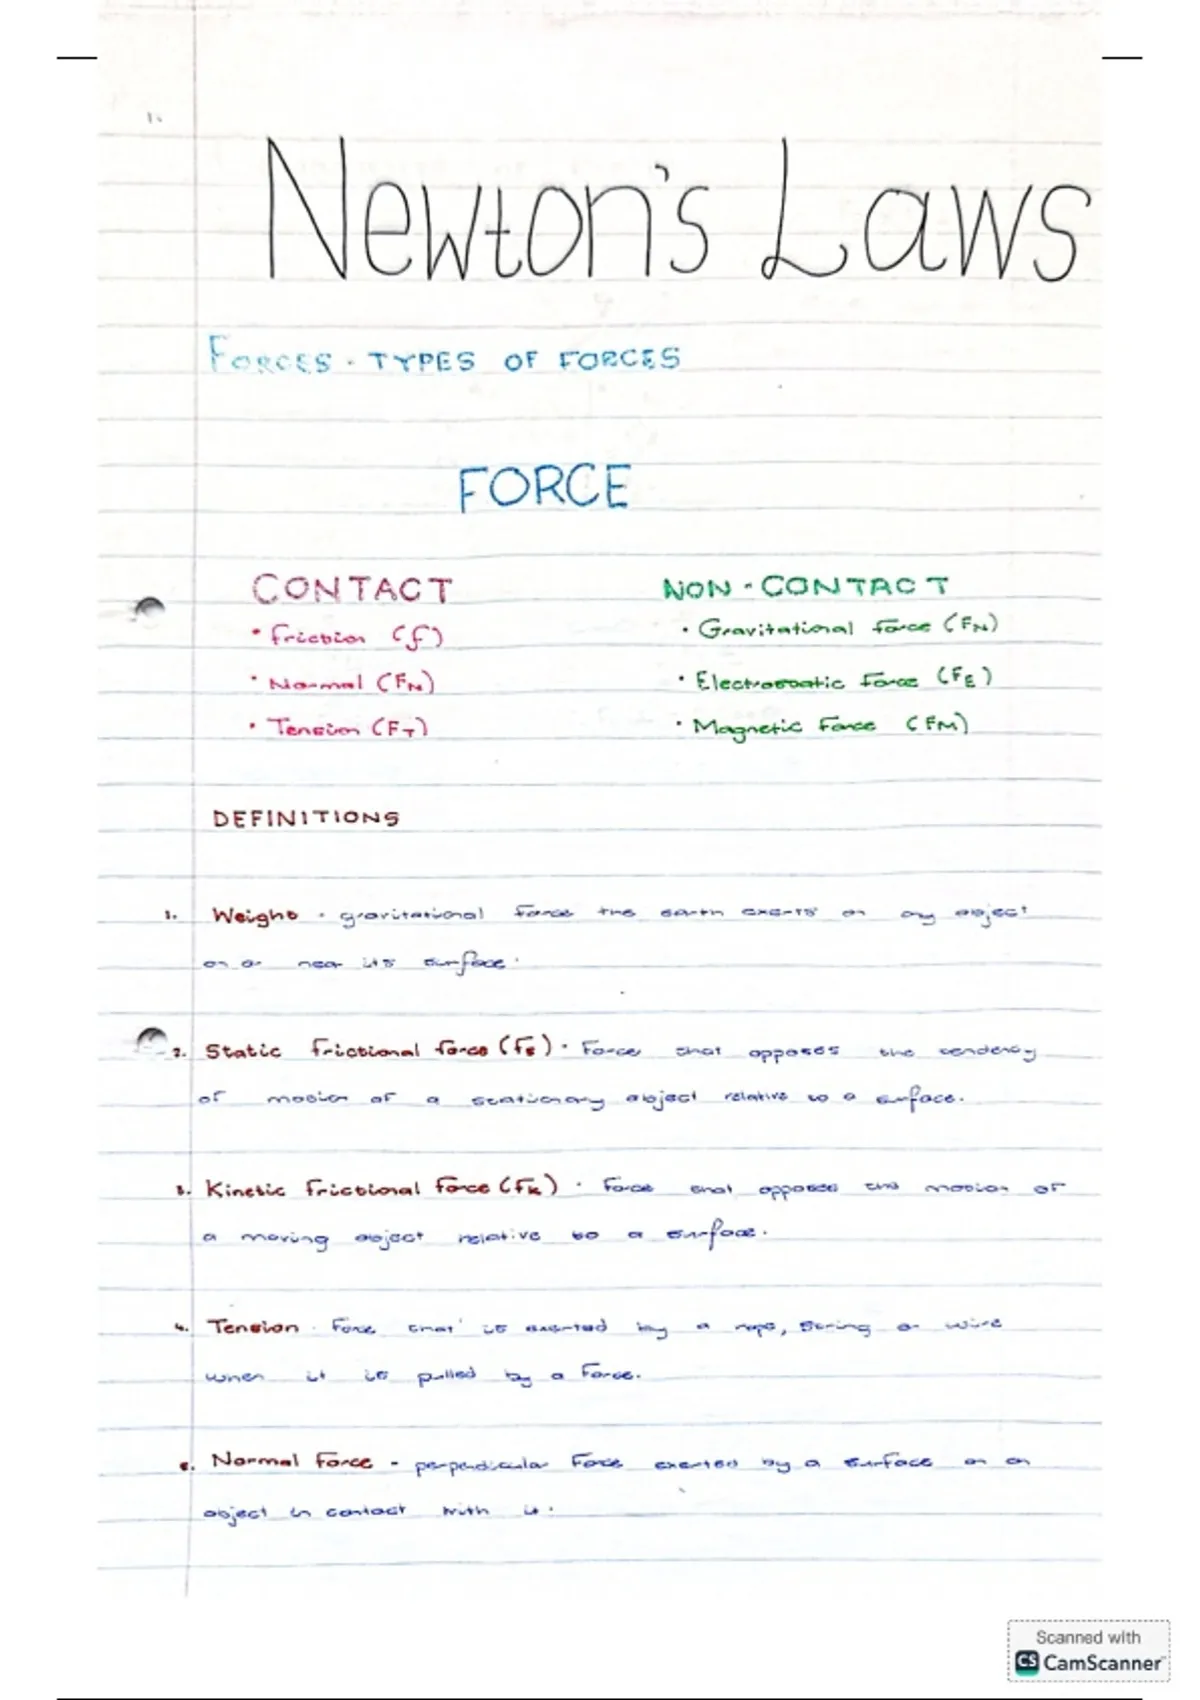 1.
Newton's Laws
FORCES - TYPES OF FORCES
FORCE
CONTACT
• Friction (f)
• Normal (FN)
• Tension (FT)
NON-CONTACT
• Gravitational force (FN)
• Electrostatic force (FE)
• Magnetic Force (FM)
DEFINITIONS
1. Weight - gravitational force the earth exerts on any object
on or near its surface.
2. Static frictional force (fs) - Force that opposes the tendency
of motion of a stationary object relative to a surface.
3. Kinetic frictional force (fk) - Force that opposes the motion of
a moving object relative to a surface.
4. Tension - Force that is exerted by a rope, string or wire
when it is pulled by a force.
5. Normal force - perpendicular Force exerted by a surface on an
object in contact with it.
Scanned with
CS CamScanner